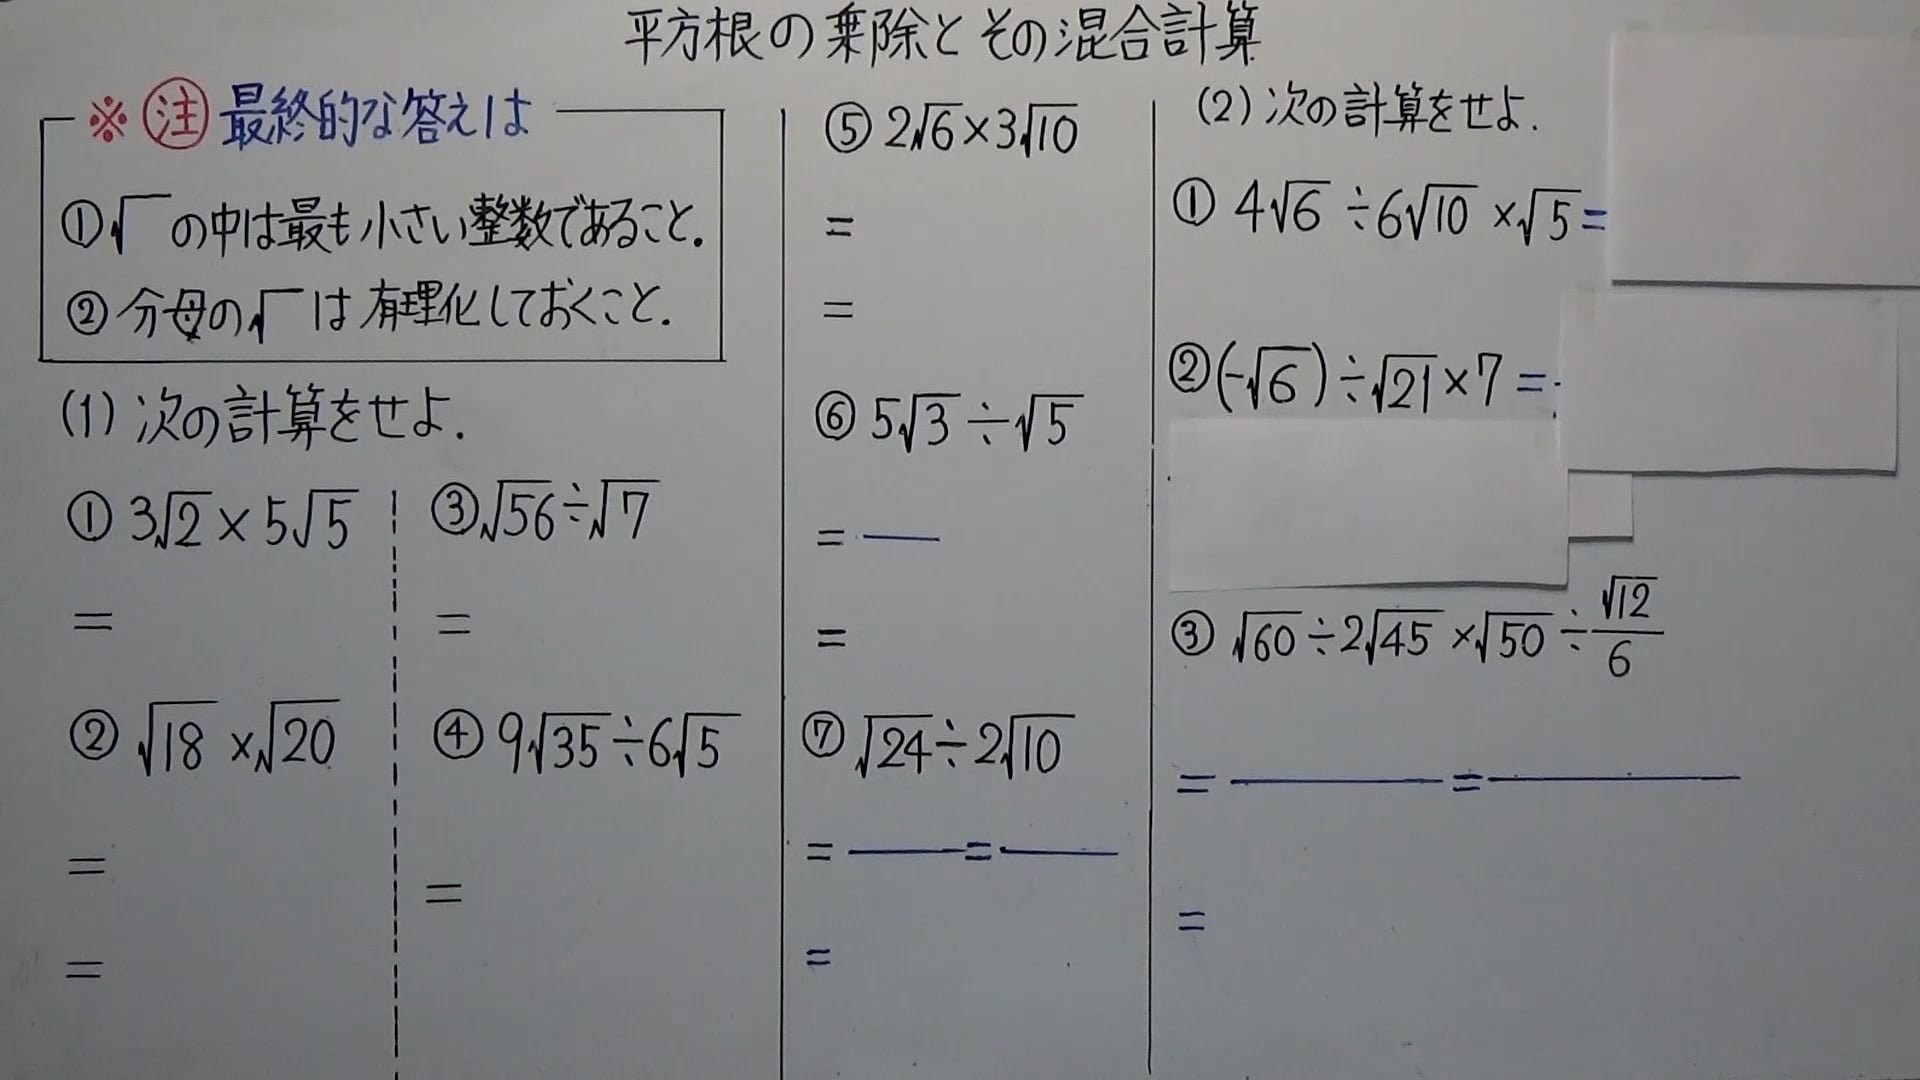 平方根の乗除とその混合計算
※ 注 最終的な答えは
①√ の中は最も小さい整数であること.
② 分母の√ は有理化しておくこと.
(1) 次の計算をせよ.
① 3√2 × 5√5
=
② √18 × √20
=
=
③ √56 ÷ √7
=
④ 9√35 ÷ 6√5
=
⑤ 2√6 × 3√10
=
=
⑥ 5√3 ÷ √5
=
=
⑦ √24 ÷ 2√10
= =
=
(2) 次の計算をせよ.
① 4√6 ÷ 6√10 × √5 =
② (-√6) ÷ √21 × 7 =
③ √60 ÷ 2√45 × √50 ÷ √12/6
= =
=